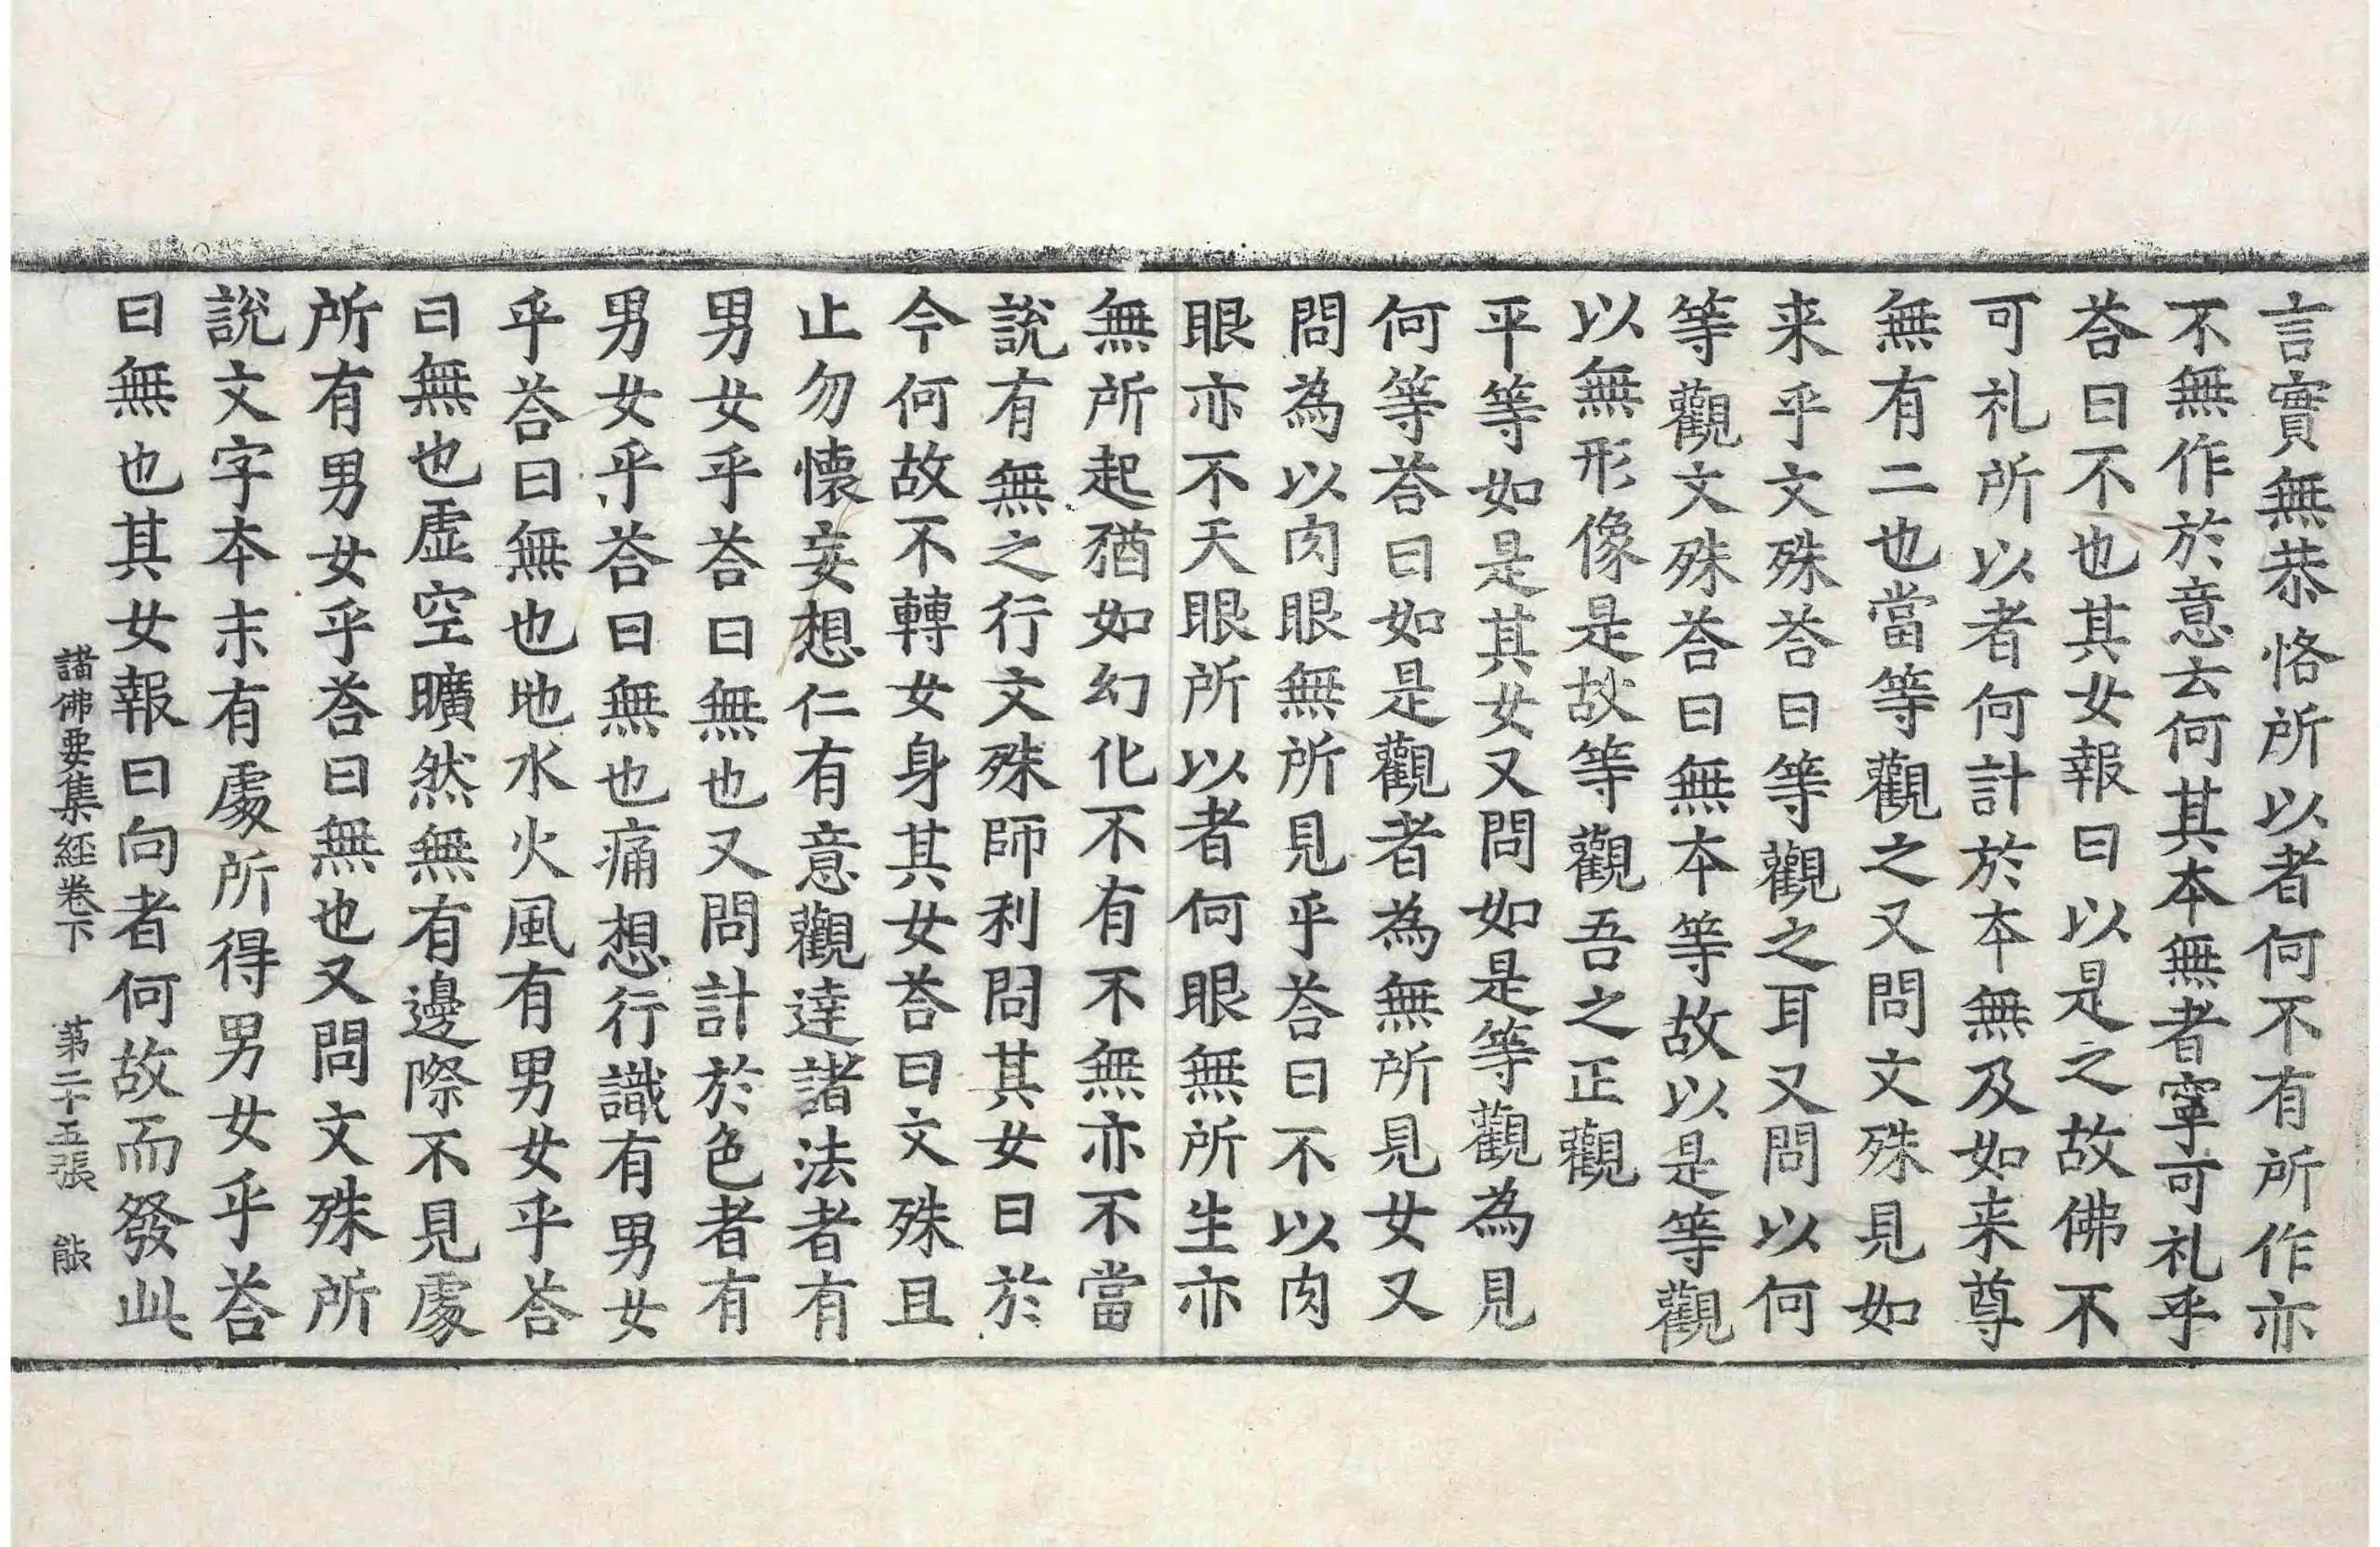 言實無恭恪所以者何不有所作亦
不無作於意云何其本無者寧可礼乎
荅曰不也其女報曰以是之故佛不
可礼所以者何計於本無及如来尊
無有二也當等觀之又問文殊見如
来乎文殊荅曰等觀之耳又問以何
等觀文殊荅曰無本等故以是等觀
以無形像是故等觀吾之正觀
平等如是其女又問如是等觀為見
何等荅曰如是觀者為無所見女又
問為以肉眼無所見乎荅曰不以肉
眼亦不天眼所以者何眼無所生亦
無所起猶如幻化不有不無亦不當
說有無之行文殊師利問其女曰於
今何故不轉女身其女荅曰文殊且
止勿懷妄想仁有意觀達諸法者有
男女乎荅曰無也又問計於色者有
男女乎荅曰無也痛想行識有男女
乎荅曰無也地水火風有男女乎荅
曰無也虛空曠然無有邊際不見處
所有男女乎荅曰無也又問文殊所
說文字本末有處所得男女乎荅
曰無也其女報曰向者何故而發此
諸佛要集經卷下 第二十五張 能